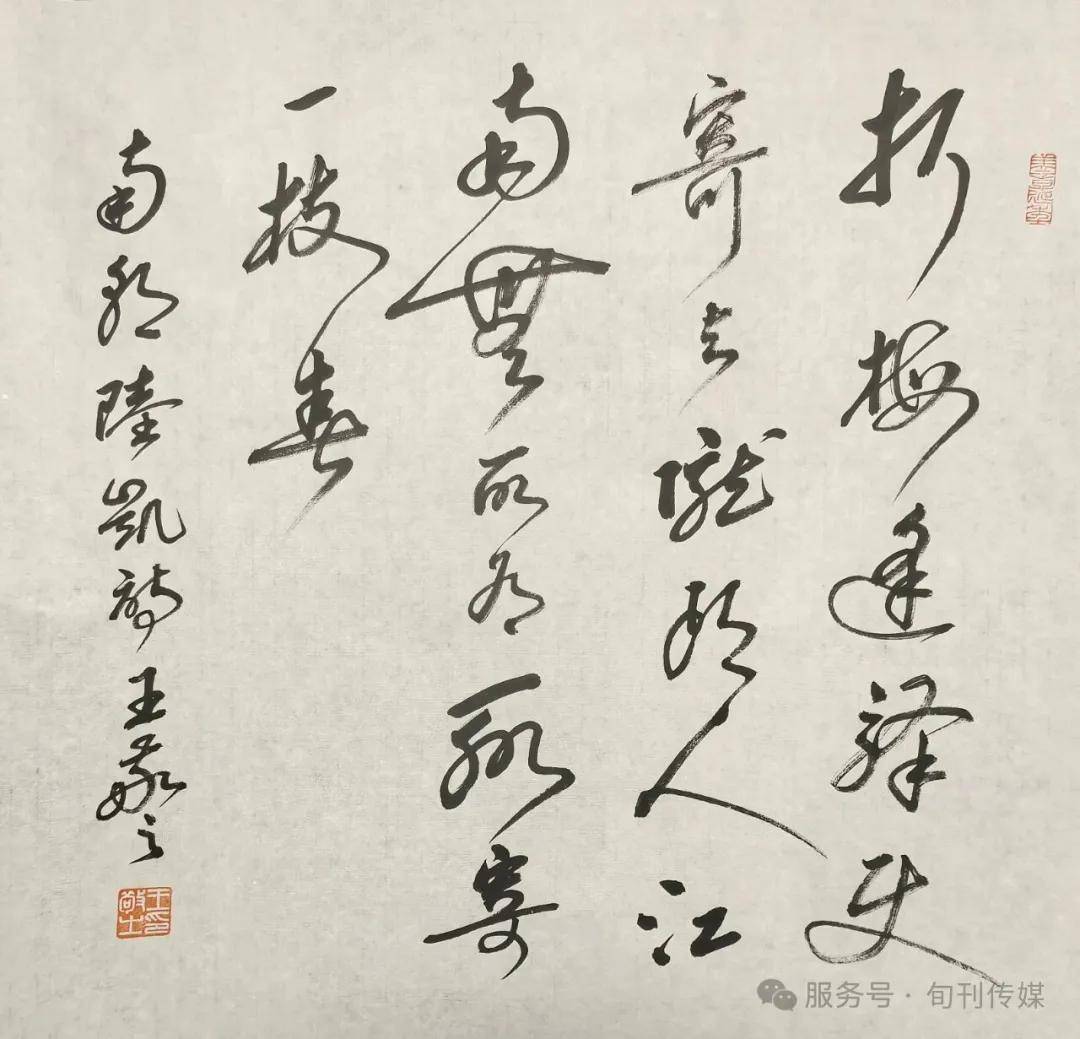 折梅逢驛使
寄去隴頭人江
南無所有聊寄
一枝春
南朝陸凱詩王敬之
服务号·旬刊传媒